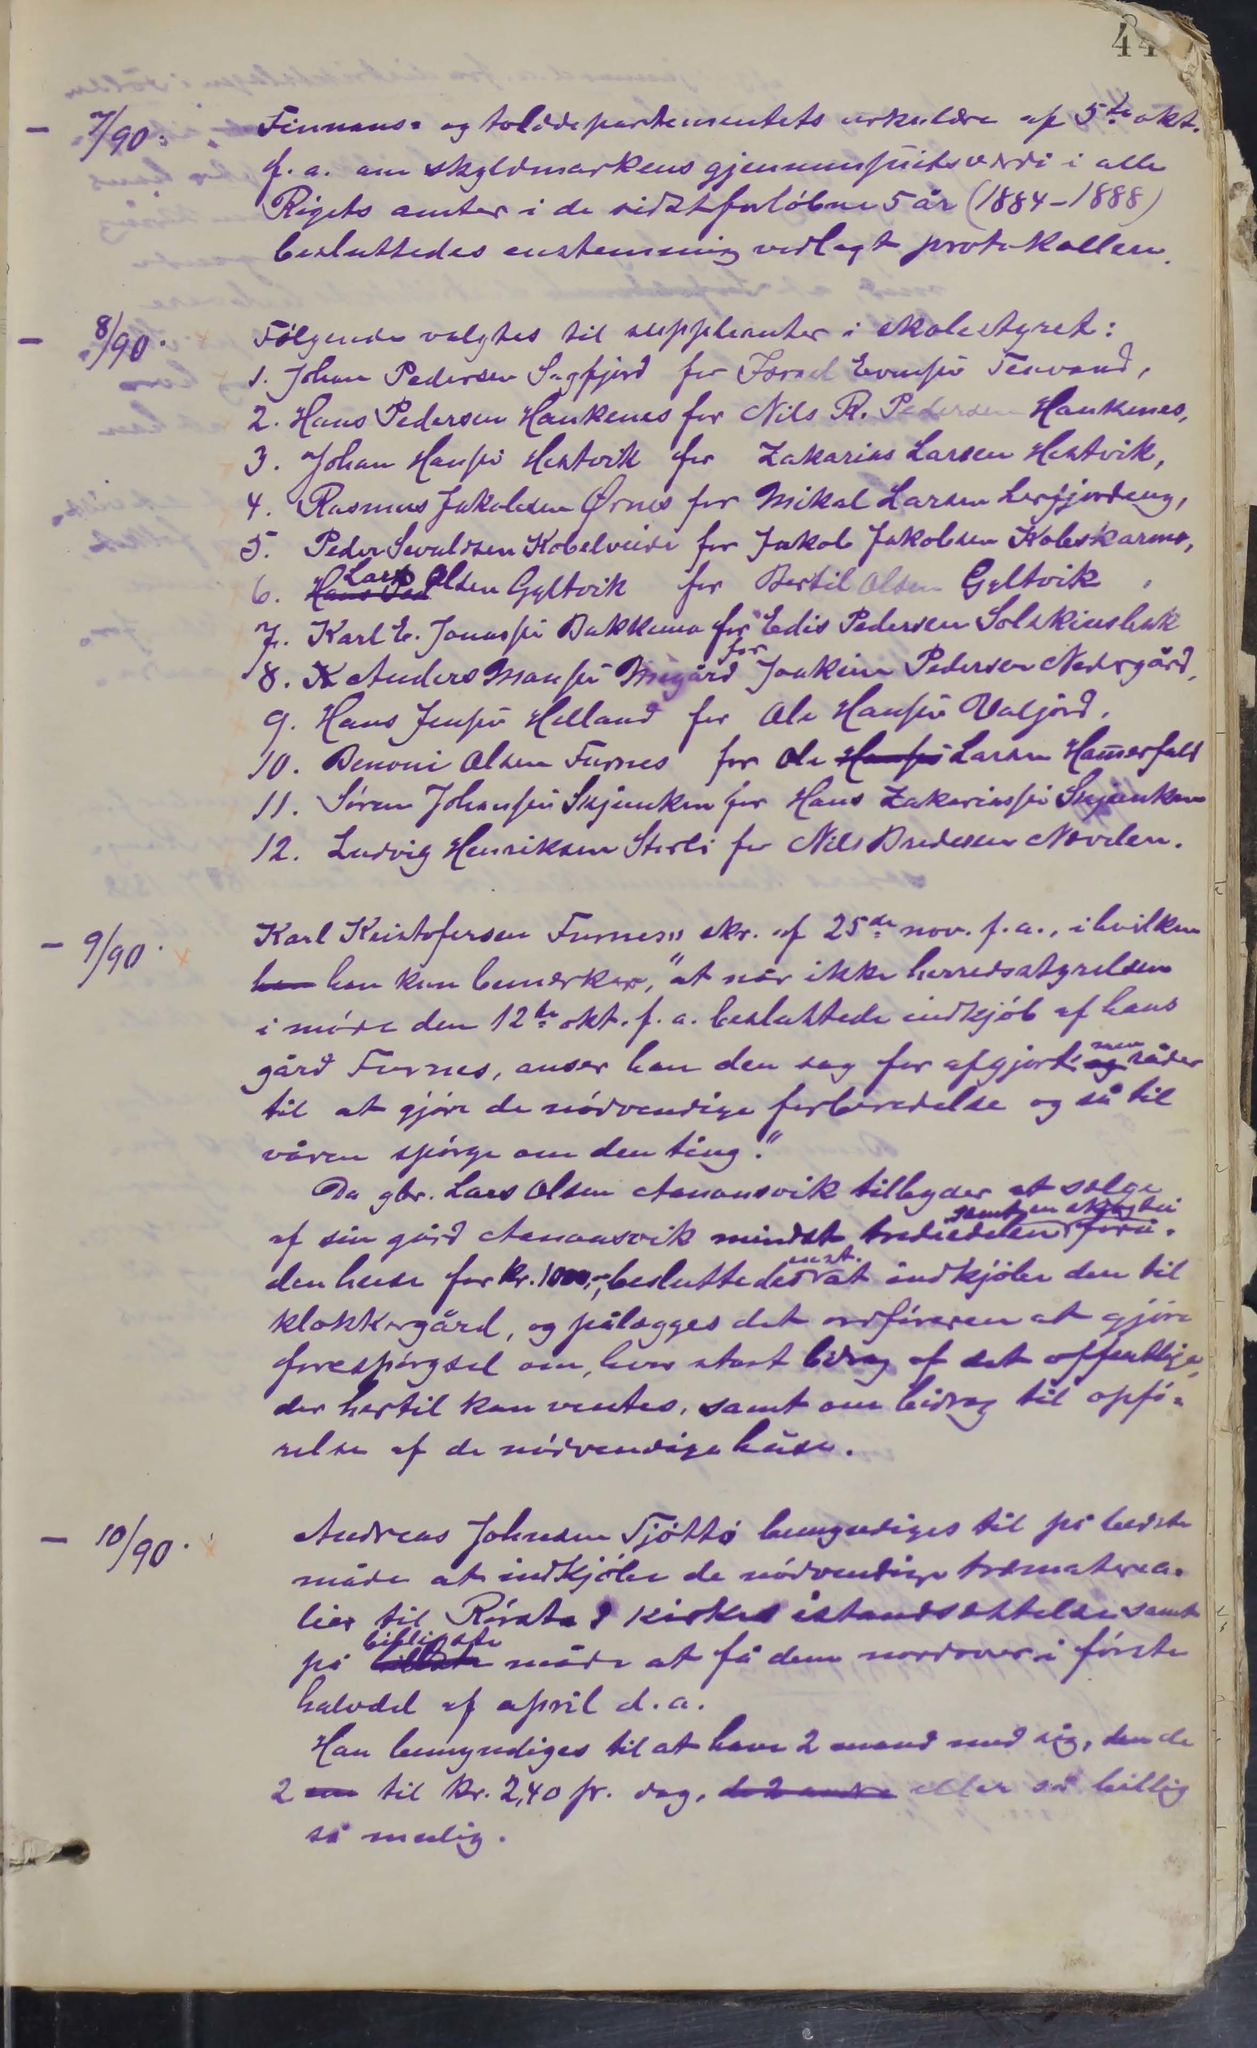 44
- 7/90. Finnans- og tolddepartementets cirkulære af 5te okt.
f. a. om skyldmarkens gjennemsnitsværdi i alle
Rigets amter i de sidstforløbne 5 år (1884-1888)
besluttedes enstemmig vedlagt protokollen.
- 8/90. Følgende valgtes til suppleanter i skolestyret:
1. Johan Pedersen Sagfjord for Evensen
2. Hans Pedersen Haukenes for Nils R. Pedersen Haukenes,
3. Johan Hansen Hestvik for Zakarias Larsen Hestvik,
4. Rasmus Jakobsen Ørnes for Mikal Larsen Lerfjordeng,
5. Peder Sevaldsen Kobelveide for Jakob Jakobsen Kobskarmo,
6. Hans Ped Lars Olsen Gyltvik for Bertil Olsen Gyltvik,
7. Karl E. Jonassen Bakkemo for Edis Pedersen Solskinsbak
8. Anders Mansen Migård for Joakim Pedersen Nedrgård,
9. Hans Jensen Helland for Ole Hansen Valjord.
10. Benoni Olsen Furnes for Ole Hansen Larsen Hamerfald
11. Søren Johansen Skjunken for Hans Zakariassen Skjunken
12. Ludvig Henriksen Storli for Nils Bredesen Nevelen.
- 9/90. Karl Kristofersen Furnes's skr. af 25de nov. f. a., i hvilken
han han kun bemærker, "at når ikke herredsstyrelsen
i møde den 12te okt. f. a. besluttede indkjøb af hans
gård Furnes, anser han den sag for afgjort og men råder
til at gjøre de nødvendige forberedelse og så til
våren spørge om den ting."
Da gbr. Lars Olsen Aanonsvik tilbyder at sælge
af sin gård Aanonsvik mindst trediedelen samt en
den huse for kr. 1000,-, besluttedes enst. at indkjøbe den til
klokkergård, og pålægges det ordføreren at gjøre
forespørgsel om, hvor stort bidrag af det offentlige,
der hertil kan ventes, samt om bidrag til opfø-
relse af de nødvendige huse.
- 10/90. Andreas Johnsen Tjøttø bemyndiges til på bedste
måde at indkjøbe de nødvendige træmateria-
lier til Rørstad kirkes istandsættelse samt
på billigste måde at få dem nordover i første
halvdel af april d. a.
Han bemyndiges til at have 2 mand med sig, den de
2 til kr. 2,40 pr. dag, de 2 andre eller så billig
så mulig.